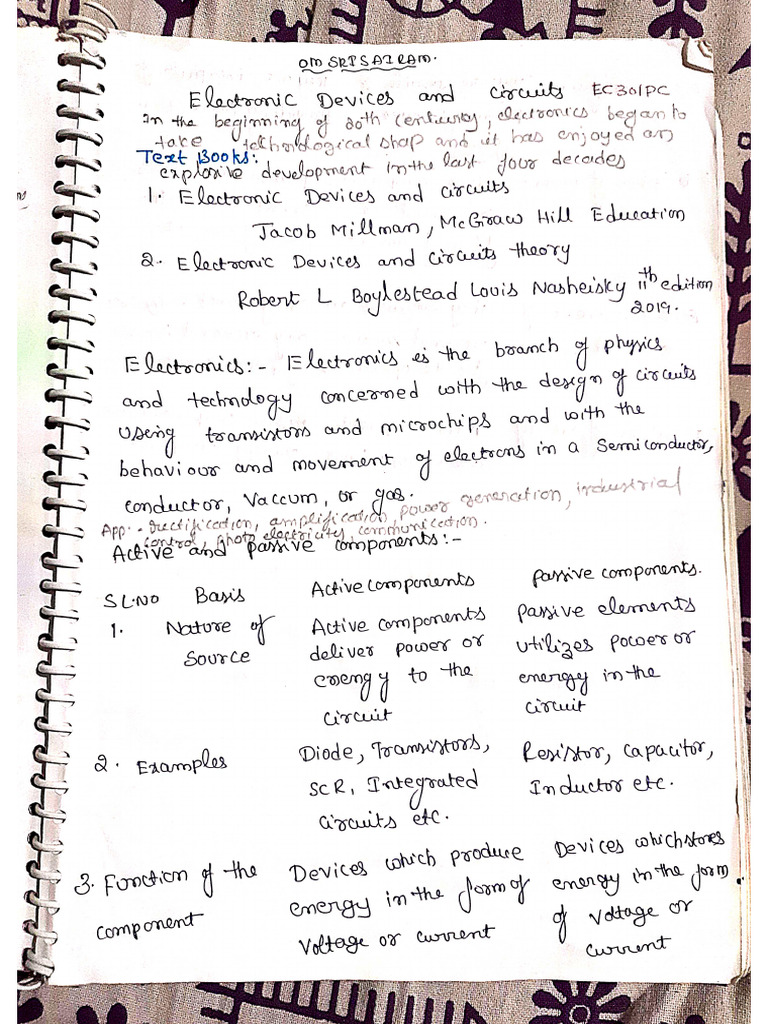 OM SRI SAI RAM.
Electronic Devices and circuits EC301PC
In the beginning of 20th Century, electronics began to
take technological shap and it has enjoyed an
Text Books:
explosive development in the last four decades
1. Electronic Devices and circuits
Jacob Millman, McGraw Hill Education
2. Electronic Devices and circuits theory
Robert L Boylestead Louis Nasheisky 11th edition
2019.
Electronics:- Electronics is the branch of physics
and technology concerned with the design of circuits
using transistors and microchips and with the
behaviour and movement of electrons in a Semiconductor,
conductor, Vaccum, or gas.
App:- rectification, amplification, power generation, industrial
control, photo electricity, communication.
Active and passive components:-
SL.NO Basis Active components passive components.
1. Nature of Active components passive elements
Source deliver power or utilizes power or
enengy to the energy in the
circuit circuit
2. Examples Diode, Transistors, Resistor, capacitor,
SCR, Integrated Inductor etc.
circuits etc.
3. Function of the Devices which produce Devices which stores
component energy in the form of energy in the form
voltage or current of voltage or
current